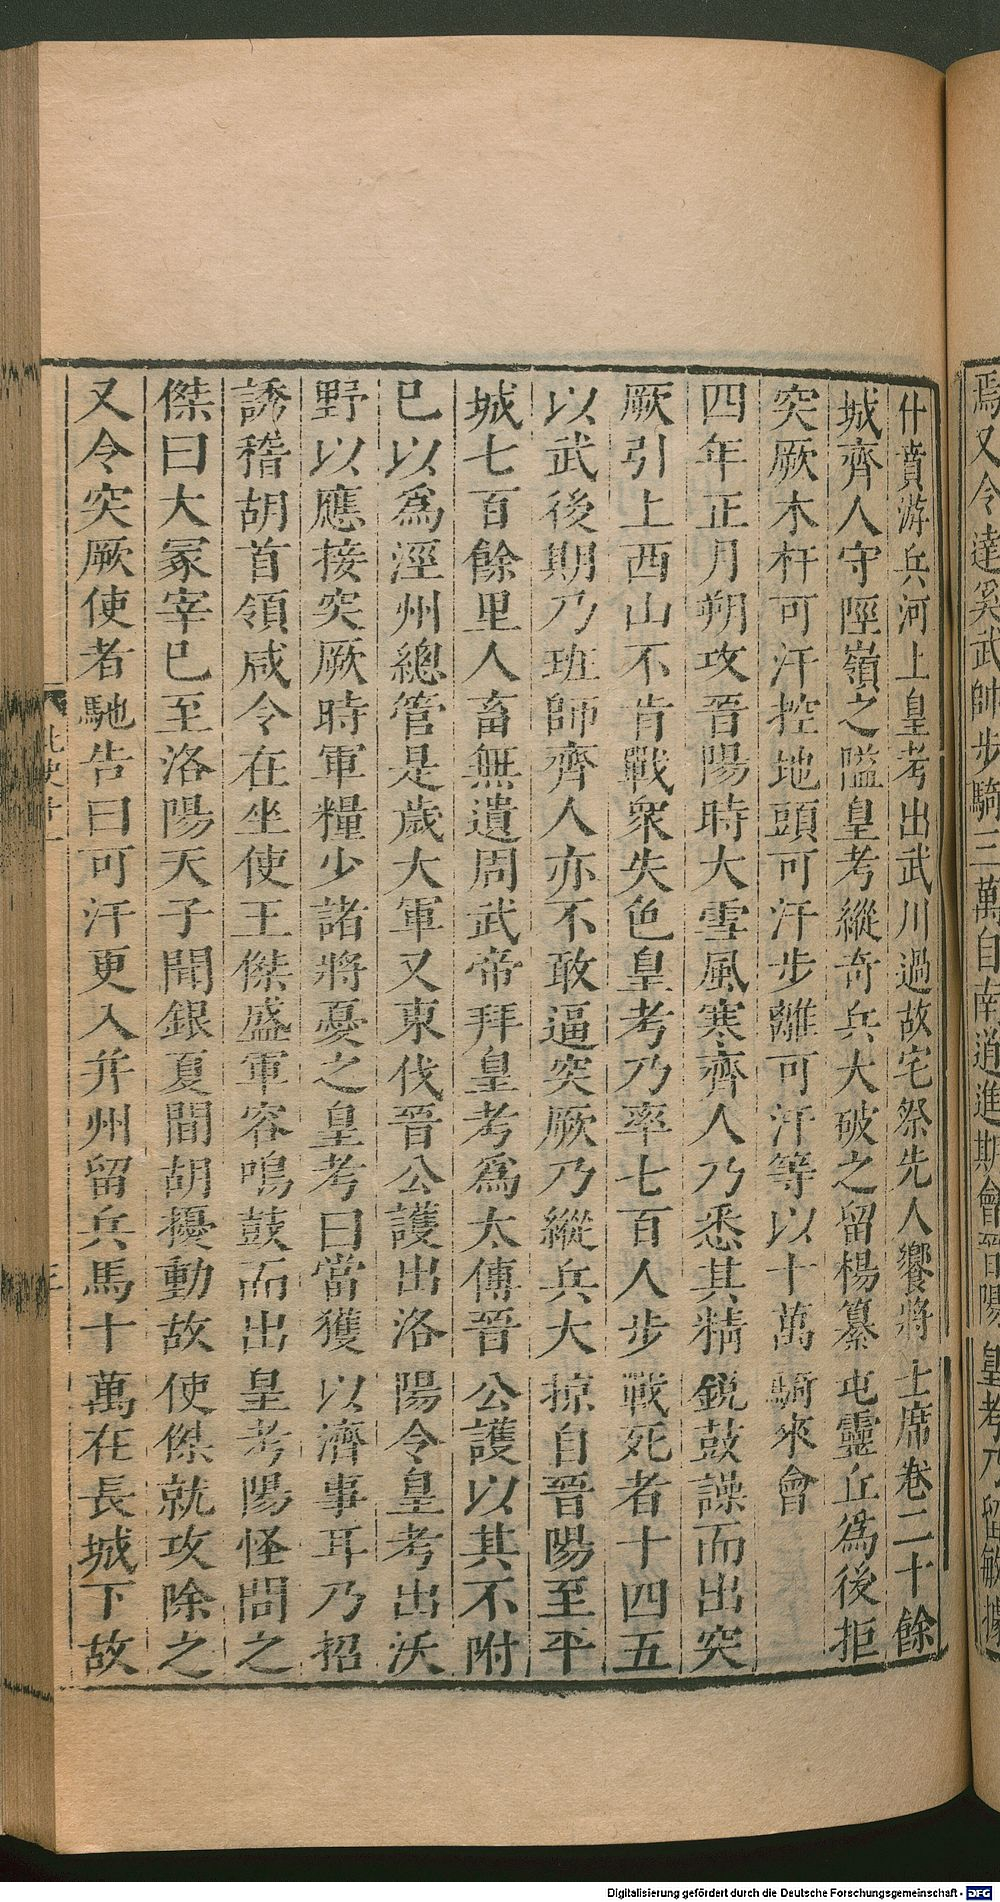 焉又令達奚武帥步騎三萬自南道進期會晉陽皇考乃留敏據
什賁游兵河上皇考出武川過故宅祭先人饗將士席卷二十餘
城齊人守陘嶺之隘皇考縱奇兵大破之留楊纂屯靈丘爲後拒
突厥木杆可汗控地頭可汗步離可汗等以十萬騎來會
四年正月朔攻晉陽時大雪風寒齊人乃悉其精銳鼓譟而出突
厥引上西山不肯戰衆失色皇考乃率七百人步戰死者十四五
以武後期乃班師齊人亦不敢逼突厥乃縱兵大掠自晉陽至平
城七百餘里人畜無遺周武帝拜皇考爲太傅晉公護以其不附
巳以爲涇州總管是歲大軍又東伐晉公護出洛陽令皇考出沃
野以應接突厥時軍糧少諸將憂之皇考曰當獲以濟事耳乃招
誘稽胡首領咸令在坐使王傑盛軍容鳴鼓而出皇考陽怪問之
傑曰大冢宰巳至洛陽天子聞銀夏間胡擾動故使傑就攻除之
又令突厥使者馳告曰可汗更入并州留兵馬十萬在長城下故
北史十一
Digitalisierung gefördert durch die Deutsche Forschungsgemeinschaft - DFG